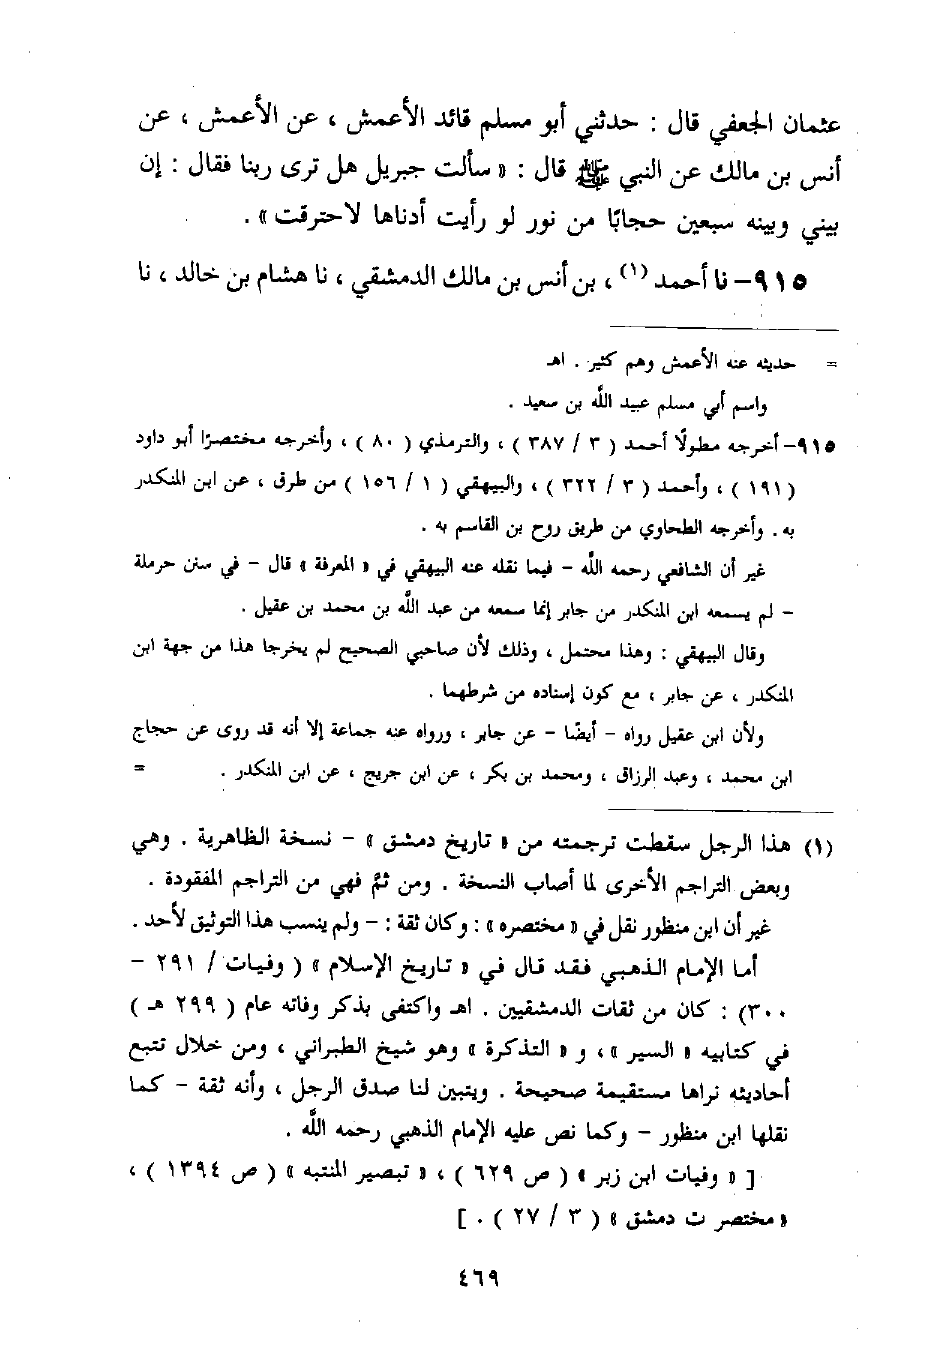 عثمان الجعفي قال : حدثني أبو مسلم قائد الأعمش ، عن الأعمش ، عن
أنس بن مالك عن النبي ﷺ قال : « سألت جبريل هل ترى ربنا فقال : إن
بيني وبينه سبعين حجابًا من نور لو رأيت أدناها لاحترقت » .
٩١٥ – نا أحمد (١) ، بن أنس بن مالك الدمشقي ، نا هشام بن خالد ، نا
= حديثه عنه الأعمش وهم كثير . اهـ
واسم أبي مسلم عبيد الله بن سعيد .
٩١٥ – أخرجه مطولًا أحمد ( ٣ / ٣٨٧ ) ، والترمذي ( ٨٠ ) ، وأخرجه مختصرًا أبو داود
( ١٩١ ) ، وأحمد ( ٣ / ٣٢٢ ) ، والبيهقي ( ١ / ١٥٦ ) من طرق ، عن ابن المنكدر
به . وأخرجه الطحاوي من طريق روح بن القاسم به .
غير أن الشافعي رحمه الله – فيما نقله عنه البيهقي في « المعرفة » قال – في سنن حرملة
– لم يسمعه ابن المنكدر من جابر إنما سمعه من عبد الله بن محمد بن عقيل .
وقال البيهقي : وهذا محتمل ، وذلك لأن صاحبي الصحيح لم يخرجا هذا من جهة ابن
المنكدر ، عن جابر ، مع كون إسناده من شرطهما .
ولأن ابن عقيل رواه – أيضًا – عن جابر ، ورواه عنه جماعة إلا أنه قد روى عن حجاج
ابن محمد ، وعبد الرزاق ، ومحمد بن بكر ، عن ابن جريج ، عن ابن المنكدر . =
(١) هذا الرجل سقطت ترجمته من « تاريخ دمشق » – نسخة الظاهرية . وهي
وبعض التراجم الأخرى لما أصاب النسخة . ومن ثمَّ فهي من التراجم المفقودة .
غير أن ابن منظور نقل في « مختصره » : وكان ثقة : – ولم ينسب هذا التوثيق لأحد .
أما الإمام الذهبي فقد قال في « تاريخ الإسلام » ( وفيات / ٢٩١ –
٣٠٠) : كان من ثقات الدمشقيين . اهـ واكتفى بذكر وفاته عام ( ٢٩٩ هـ )
في كتابيه « السير » ، و « التذكرة » وهو شيخ الطبراني ، ومن خلال تتبع
أحاديثه نراها مستقيمة صحيحة . ويتبين لنا صدق الرجل ، وأنه ثقة – كما
نقلها ابن منظور – وكما نص عليه الإمام الذهبي رحمه الله .
[ « وفيات ابن زبر » ( ص ٦٢٩ ) ، « تبصير المنتبه » ( ص ١٣٩٤ ) ،
« مختصر ت دمشق » ( ٣ / ٢٧ ) . ]
٤٦٩